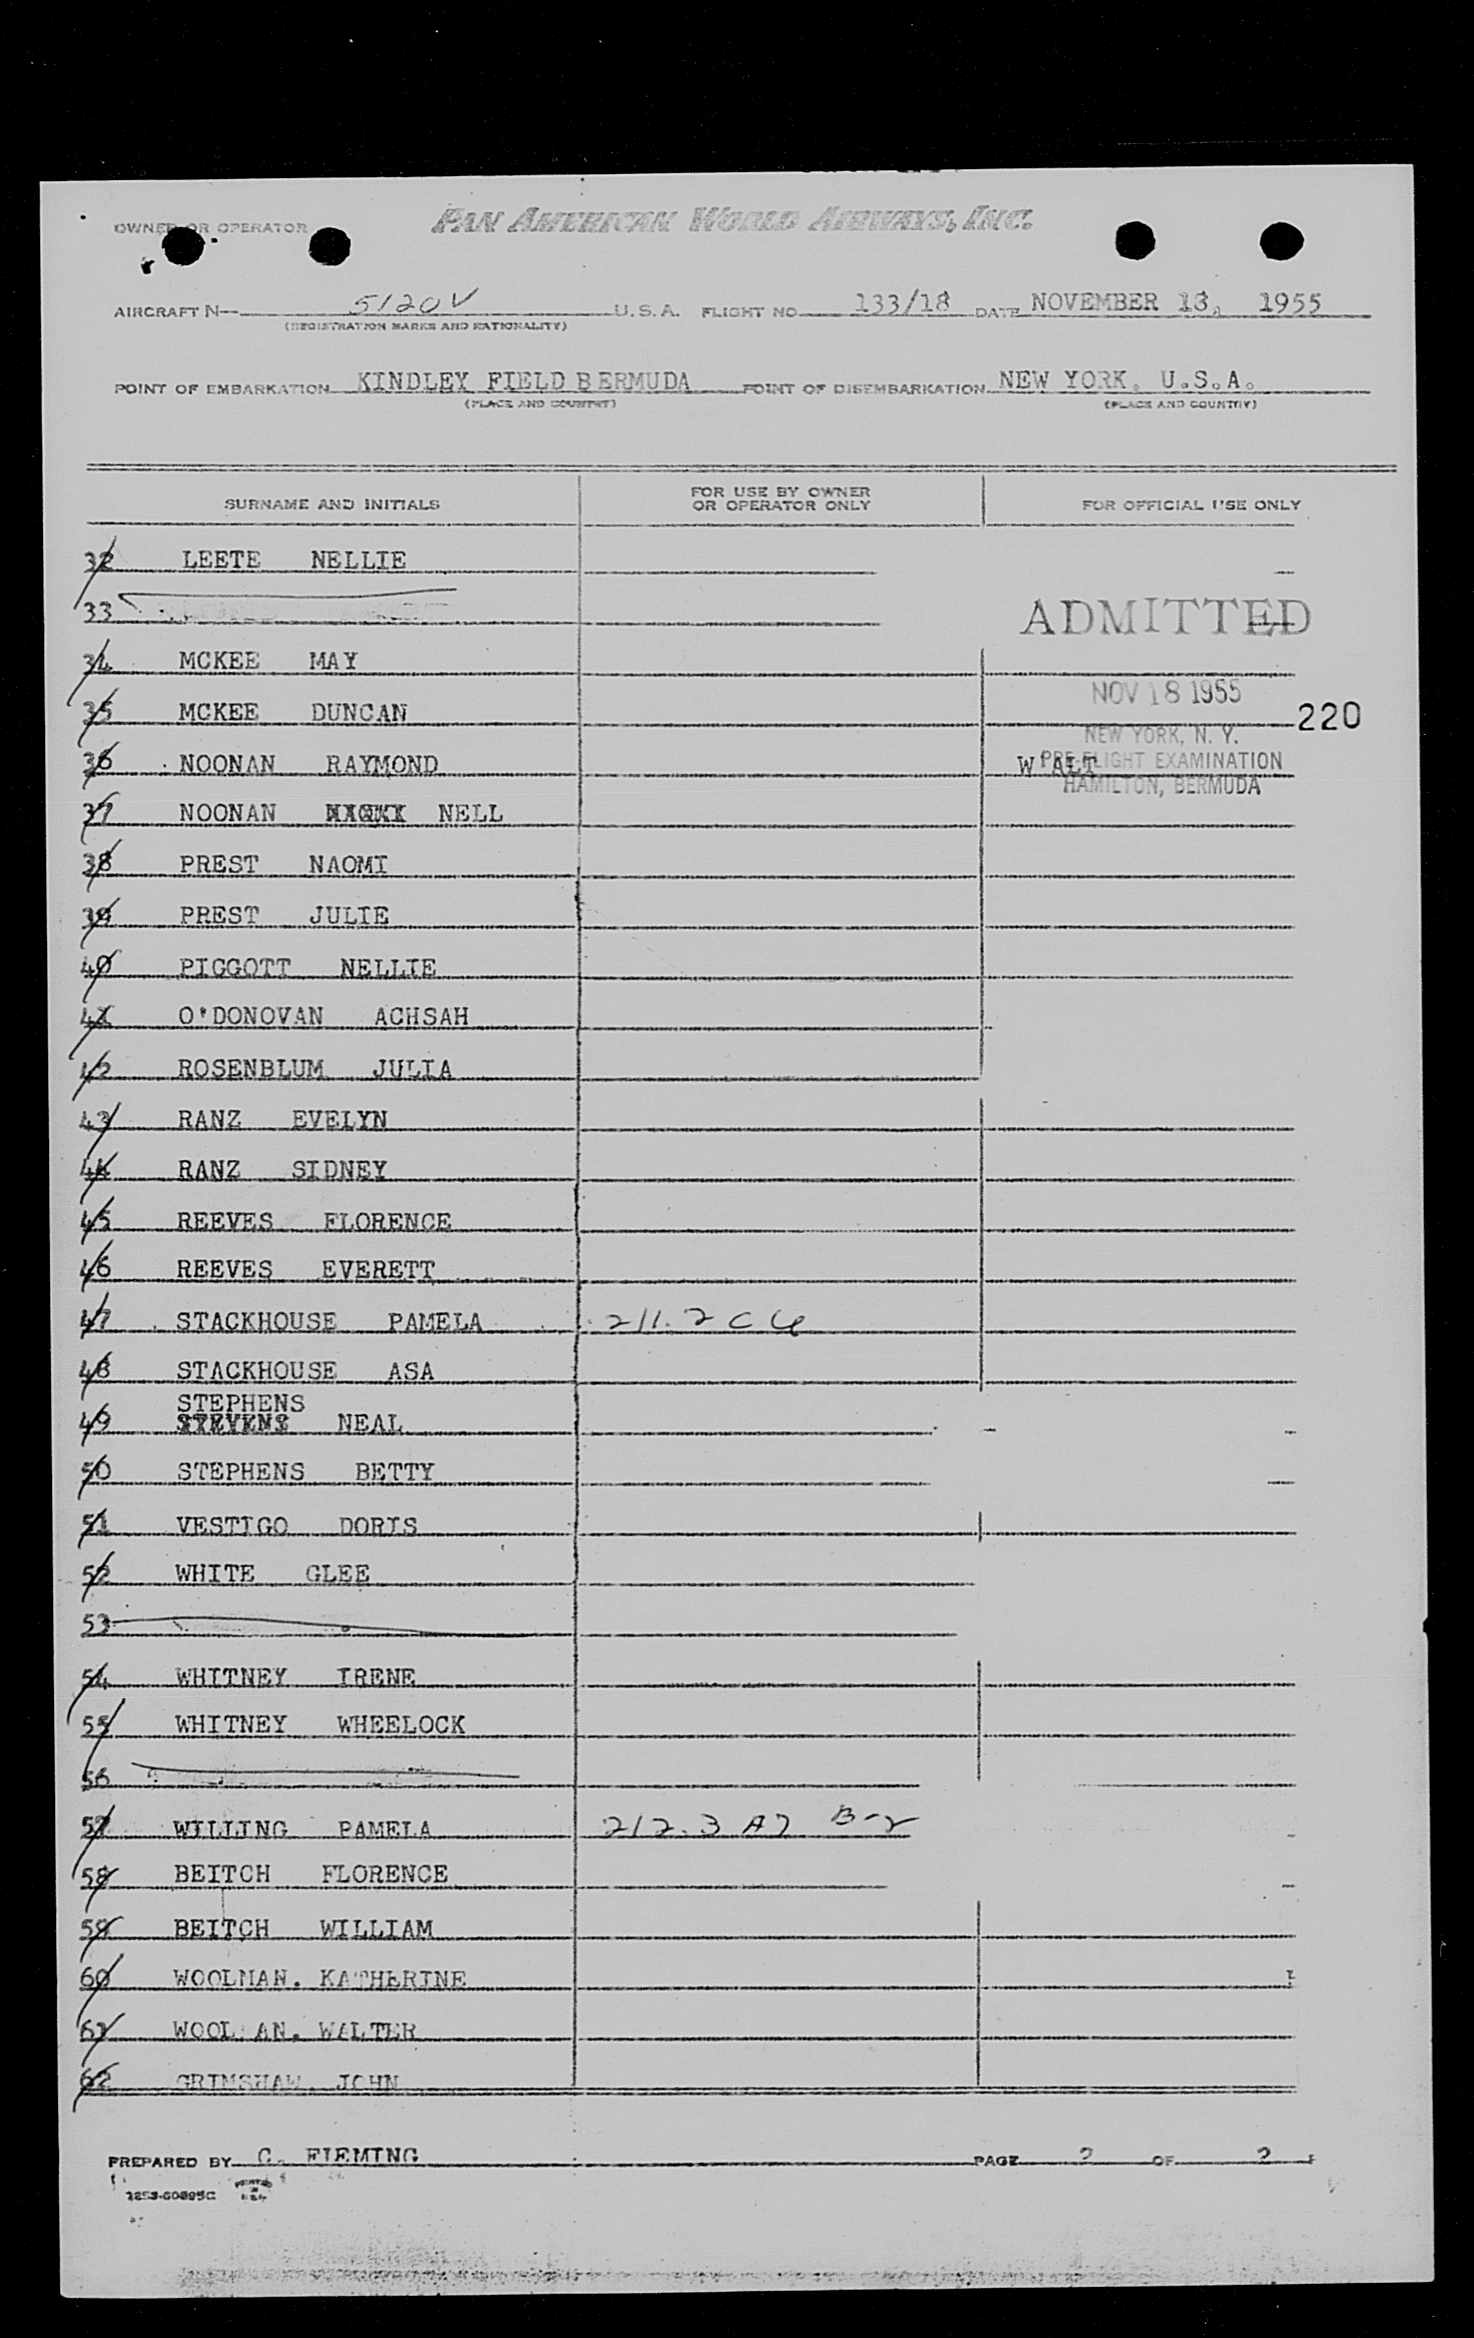 OWNER OR OPERATOR PAN AMERICAN WORLD AIRWAYS, INC.
AIRCRAFT N— 5120V U.S.A. FLIGHT NO. 133/18 DATE NOVEMBER 18, 1955
(REGISTRATION MARKS AND NATIONALITY)
POINT OF EMBARKATION KINDLEY FIELD BERMUDA POINT OF DISEMBARKATION NEW YORK, U.S.A.
(PLACE AND COUNTRY) (PLACE AND COUNTRY)
SURNAME AND INITIALS FOR USE BY OWNER OR OPERATOR ONLY FOR OFFICIAL USE ONLY
32 LEETE NELLIE
33
ADMITTED
34 MCKEE MAY
NOV 18 1955
35 MCKEE DUNCAN
220
NEW YORK, N. Y.
36 NOONAN RAYMOND
PRE FLIGHT EXAMINATION
HAMILTON, BERMUDA
37 NOONAN NELL
38 PREST NAOMI
39 PREST JULIE
40 PIGGOTT NELLIE
41 O'DONOVAN ACHSAH
42 ROSENBLUM JULIA
43 RANZ EVELYN
44 RANZ SIDNEY
45 REEVES FLORENCE
46 REEVES EVERETT
47 STACKHOUSE PAMELA 211.2 C 4
48 STACKHOUSE ASA
STEPHENS
49 STEVENS NEAL
50 STEPHENS BETTY
51 VESTIGO DORIS
52 WHITE GLEE
53
54 WHITNEY IRENE
55 WHITNEY WHEELOCK
56
57 WILLING PAMELA 212.3 A7 B-2
58 BEITCH FLORENCE
59 BEITCH WILLIAM
60 WOOLMAN. KATHERINE
61 WOOLMAN. WALTER
62 GRIMSHAW JOHN
PREPARED BY C. FLEMING PAGE 2 OF 2